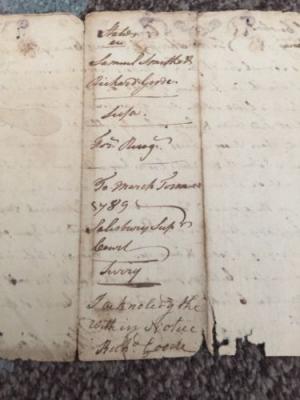 State
vs
Samuel Smith &
Richard Goode
Sci fa.
For Recog.
To March Term
1789
Salisbury Sup.r
Court
Surry
I acknoledg the
with in Notice
Rich.d Goode